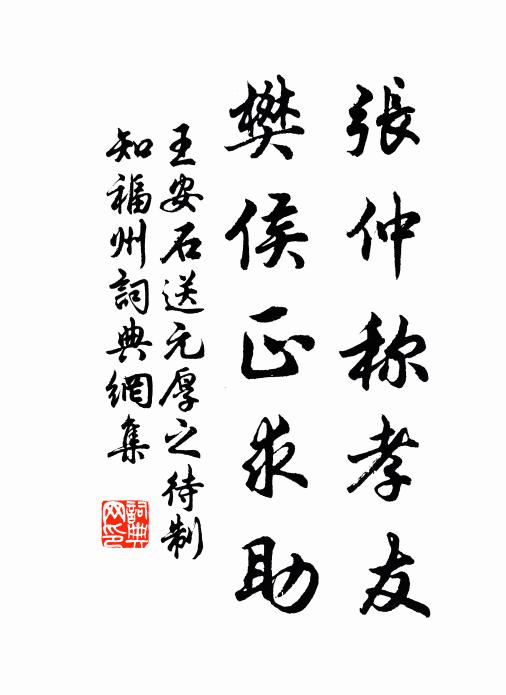 張仲称孝友
樊侯正求助
王安石送元厚之待制
知福州詞典網集
詞典
网印